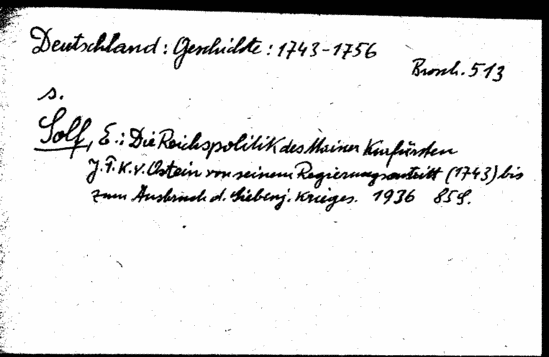 Deutschland: Geschichte: 1743-1756
Brosch. 513
s.
Solf, E.: Die Reichspolitik des Mainer Kurfürsten
J. F. K. v. Ostein von seinem Regierungsantritt (1743) bis
zum Ausbruch d. Siebenj. Krieges. 1936 85 S.